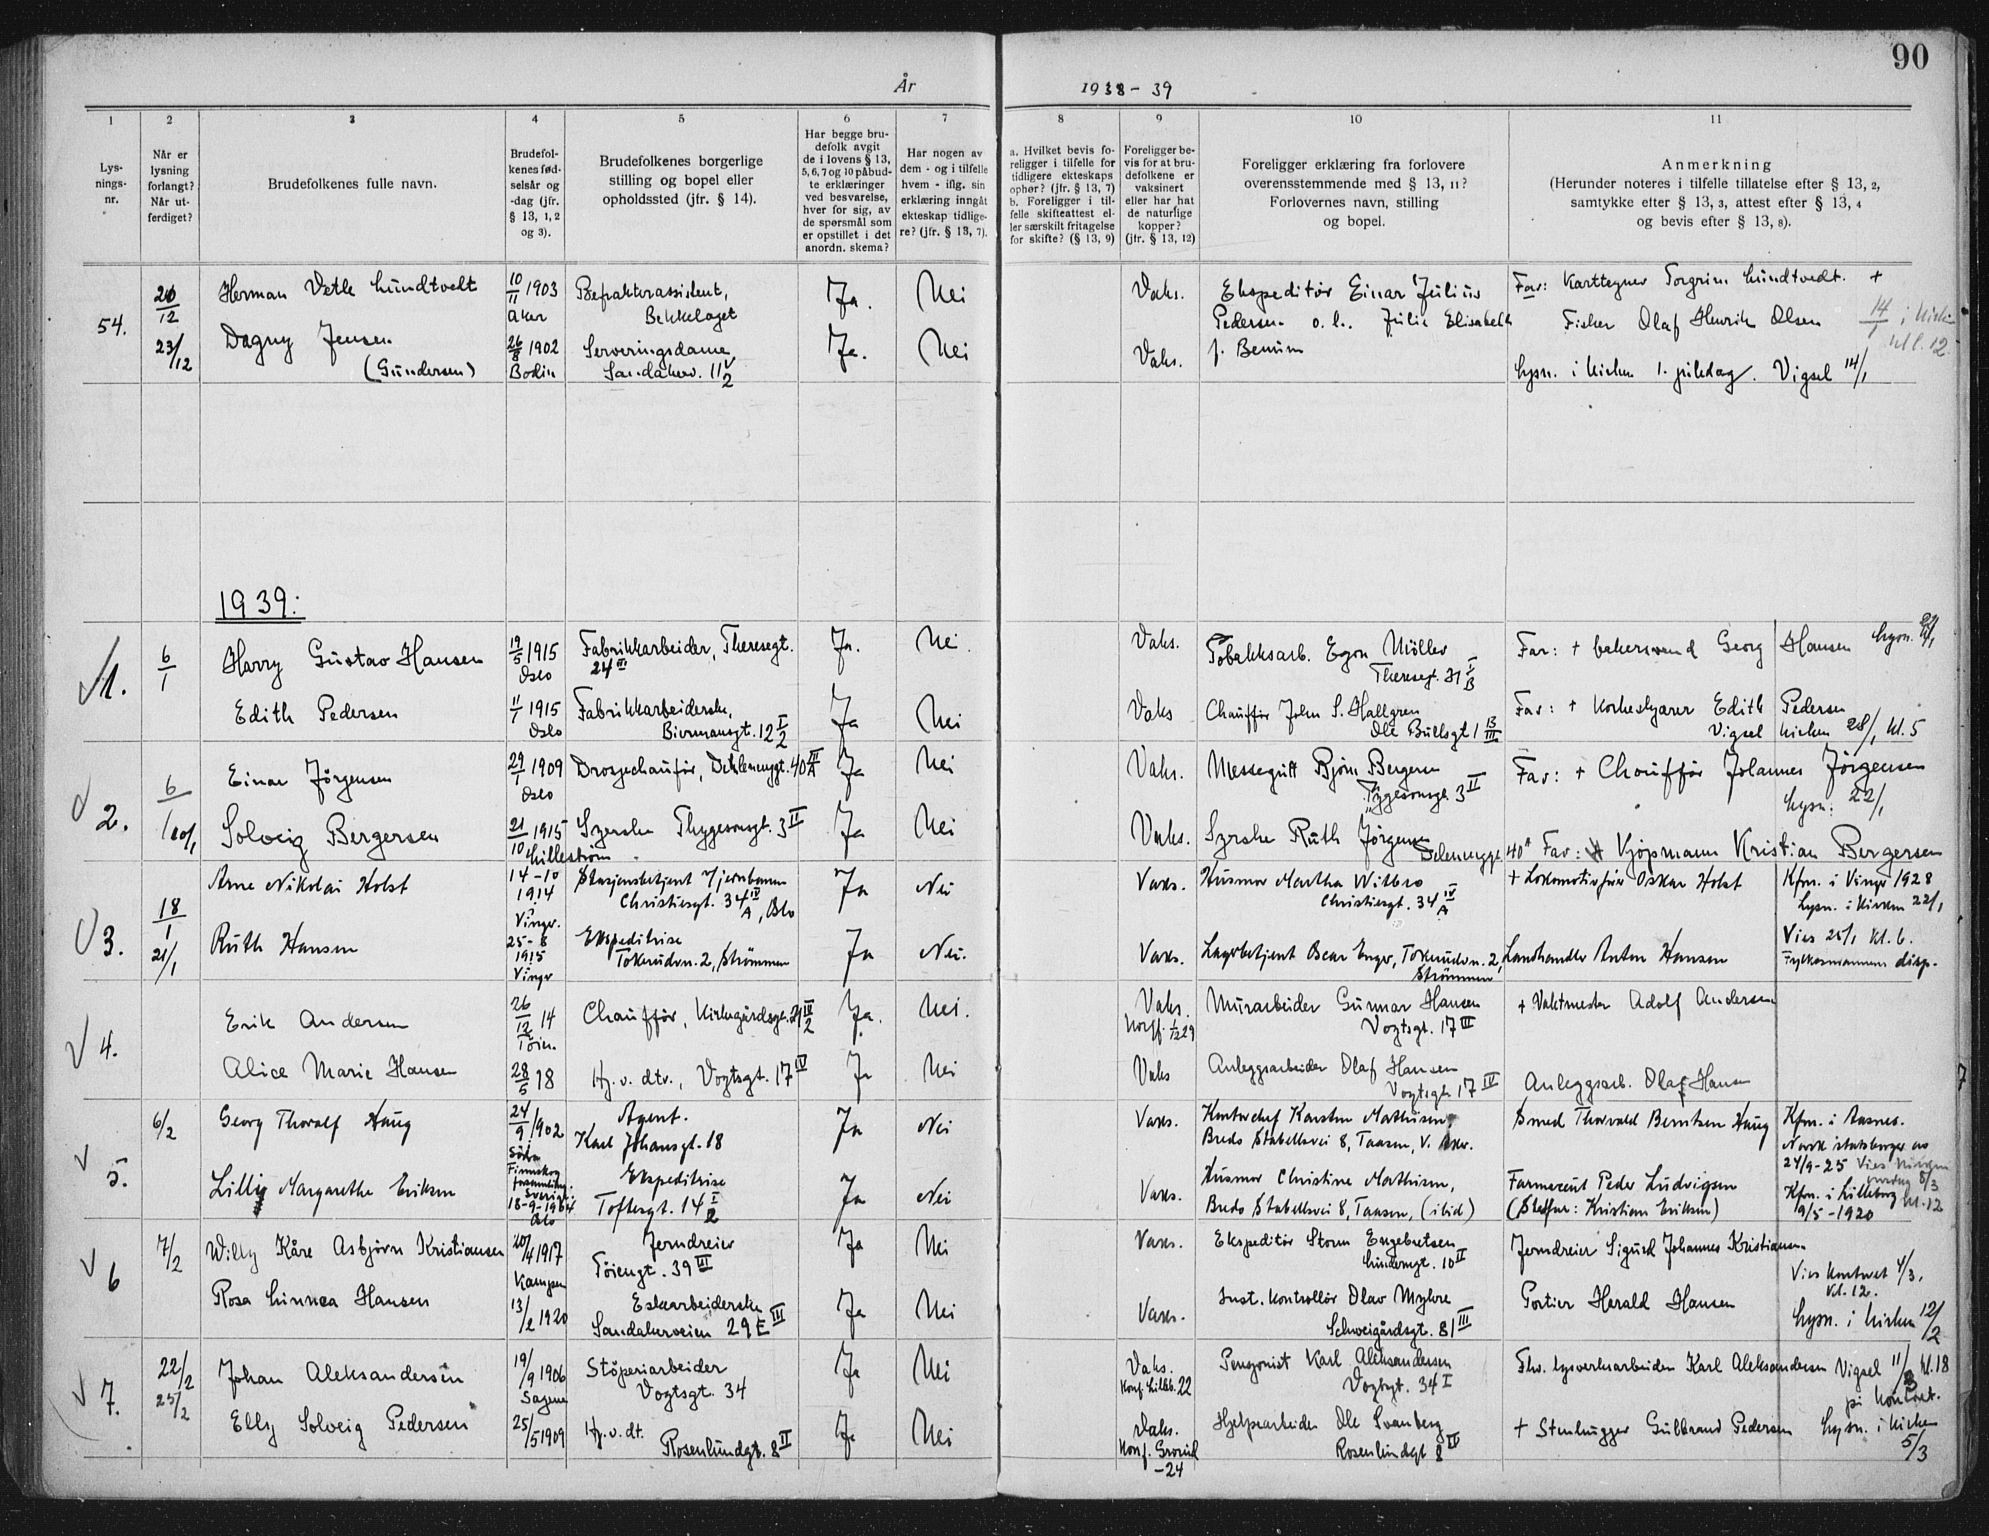 90
År 1938-39
1 2 3 4 5 6 7 8 9 10 11
Lys-
nings-
nr.
Når er
lysning
forlangt?
Når ut-
ferdiget?
Brudefolkenes fulle navn.
Brudefol-
kenes fød-
selsår og
-dag (jfr.
§ 13, 1, 2
og 3).
Brudefolkenes borgerlige
stilling og bopel eller
opholdssted (jfr. § 14).
Har begge bru-
defolk avgit
de i lovens § 13,
5, 6, 7 og 10 påbud-
te erklæringer
ved besvarelse,
hver for sig, av
de spørsmål som
er opstillet i det
anordn. skema?
Har nogen av
dem - og i tilfelle
hvem - iflg. sin
erklæring inngåt
ekteskap tidlige-
re? (jfr. § 13, 7).
a. Hvilket bevis fo-
religger i tilfelle for
tidligere ekteskaps
ophør? (jfr. § 13, 7)
b. Foreligger i til-
felle skifteattest el-
ler særskilt fritagelse
for skifte? (§ 13, 9)
Foreligger be-
vis for at bru-
defolkene er
vaksinert
eller har hat
de naturlige
kopper?
(jfr. § 13, 12)
Foreligger erklæring fra forlovere
overensstemmende med § 13, 11?
Forlovernes navn, stilling
og bopel.
Anmerkning
(Herunder noteres i tilfelle tillatelse efter § 13, 2,
samtykke efter § 13, 3, attest efter § 13, 4
og bevis efter § 13, 8).
54.
20/12
23/12
Herman Vetle Lundtvedt
10/11 1903
Aker
Befrakterassistent,
Bekkelaget
Ja. Nei Vaks.
Ekspeditør Einar Julius
Pedersen o. h. Julie Elisabeth
f. Benum
Far: Karttegner Torgrim Lundtvedt. +
Dagny Jensen
(Gundersen)
26/8 1902
Bodin
Serveringsdame,
Sandakerv. 11 V/2
Ja. Nei Vaks.
Fisker Olaf Henrik Olsen
14/1 i kirken
kl. 12.
Lysn. i kirken 1. juledag. Vigsel 14/1
1939:
1.
6/1
Harry Gustav Hansen
19/5 1915
Oslo
Fabrikkarbeider, Theresegt.
24 III
Ja. Nei. Vaks.
Tobakksarb. Egon Müller
Theresegt. 21 I/B
Far: + Georg Hansen Lysn. 22/1
Edith Pedersen
11/1 1915
Oslo
Fabrikkarbeiderske,
Bjermannsgt. 12 I/2
Ja Nei Vaks
Chauffør John S. Hallgren
Ole Bullsgt 1 13/III
Far: + Korkeskjærer Edith Pedersen
Vigsel kirken 28/1 kl. 5
2.
6/1
10/1
Einar Jörgensen
29/1 1909
Oslo
Drosjechauför, Dehlenenggt. 40 III/A
Ja Nei Vaks.
Messegutt Björn Bergersen
Tygesonsgt. 3 II
Far: + Chaufför Johannes Jörgensen
Lysn: 22/1
Solveig Bergersen
21/10 1915
Lilleström
Syerske Thygesonsgt. 3 II
Ja Nei Vaks.
Syerske Ruth Jörgensen
Delenenggt 40 A
Far: Kjøpmann Kristian Bergersen
3.
18/1
21/1
Arne Nikolai Holst
14-10
1914
Vinger.
Stasjonsbetjent Hjernbanen
Christiesgt. 34 IV/A, Oslo
Ja Nei Vaks.
Husmor Martha Wilbro
Christiesgt. 34 IV/A
+ Lokomotivfører Oskar Holst
Kfm. i Vinger 1928
Lysn. i kirken 22/1
Ruth Hansen
25-8
1915
Vinger
Ekspeditrise
Tokerudvn. 2, Strömmen
Ja Nei. Vaks.
Lagerbetjent Oscar Enger, Tokerudvn. 2,
Strömmen
Landhandler Anton Hansen
Vies 25/1 kl. 6.
Fylkesmannens disp.
4.
Erik Andersen
26/12 14
Töien.
Chaufför, Kirkegårdsgt. 21 III/2
Ja. Nei.
Vaks.
Konf. 1/2 29
Murarbeider Gunnar Hansen
Vogtsgt. 17 III
+ Vaktmester Adolf Andersen
Alice Marie Hansen
28/5 18
Hj. v. dtv., Vogtsgt. 17 IV
Ja Nei Vaks
Anleggsarbeider Olaf Hansen
Vogtsgt. 17 IV
Anleggsarb. Olaf Hansen
5.
6/2
Georg Thoralf Haug
24/9 1902
Södra
Finnskog
forsamling.
Sverige
Agent.
Karl Johansgt. 18
Ja Nei Vaks.
Kontorchef Karsten Mathisen,
Breds Stabellsvei 8, Taasen, V. Aker.
Smed Thorvald Berntsen Haug
Kfm. i Aasnes.
Norsk statsborger av
24/9-25 Vies kirken
onsdag 8/3
kl. 12
Lilly Margarethe Eriksen
18-9-1904
Oslo
Ekspeditrise
Toftesgt. 14 I/2
Ja Nei Vaks.
Husmor Christine Mathisen,
Breds Stabellsvei 8, Taasen, (ibid)
Farmaceut Peder Ludvigsen
(Stedfar: Kristian Eriksen)
Kfm. i Lilleborg
9/5-1920
6
7/2
Willy Kåre Asbjørn Kristiansen
20/4 1917
Kampen
Jerndreier
Töiengt. 39 III
Ja Nei Vaks.
Ekspeditör Storm Engebretsen
Lundernsgt. 10 II
Jerndreier Sigurd Johannes Kristiansen
Vies kontoret 4/3,
kl. 12.
Rosa Linnea Hansen
13/2 1920
Eskearbeiderske
Sandakerveien 29 E III
Ja Nei Vaks.
Inst. kontrollör Olav Myhre
Schweigårdsgt. 81 III
Portier Herald Hansen
Lysn. i kirken 12/2
7.
22/2
25/2
Johan Aleksandersen
19/9 1906
Sagene
Stöperiarbeider
Vogtsgt. 34
Ja Nei
Vaks.
Konf. Lilleb. 22
Pensjonist Karl Aleksandersen
Vogtsgt. 34 I
Fhv. lysverksarbeider Karl Aleksandersen
Vigsel 11/3 kl. 18
på kontoret.
Elly Solveig Pedersen
25/5 1909
Hj. v. dt.
Rosenlundgt. 8 II
Ja Nei
Vaks.
Konf. Grorud
-24
Hjelpearbeider Ole Svanberg
Rosenlundgt 8 IV
+ Stenhugger Gulbrand Pedersen
Lysn. i kirken
5/3